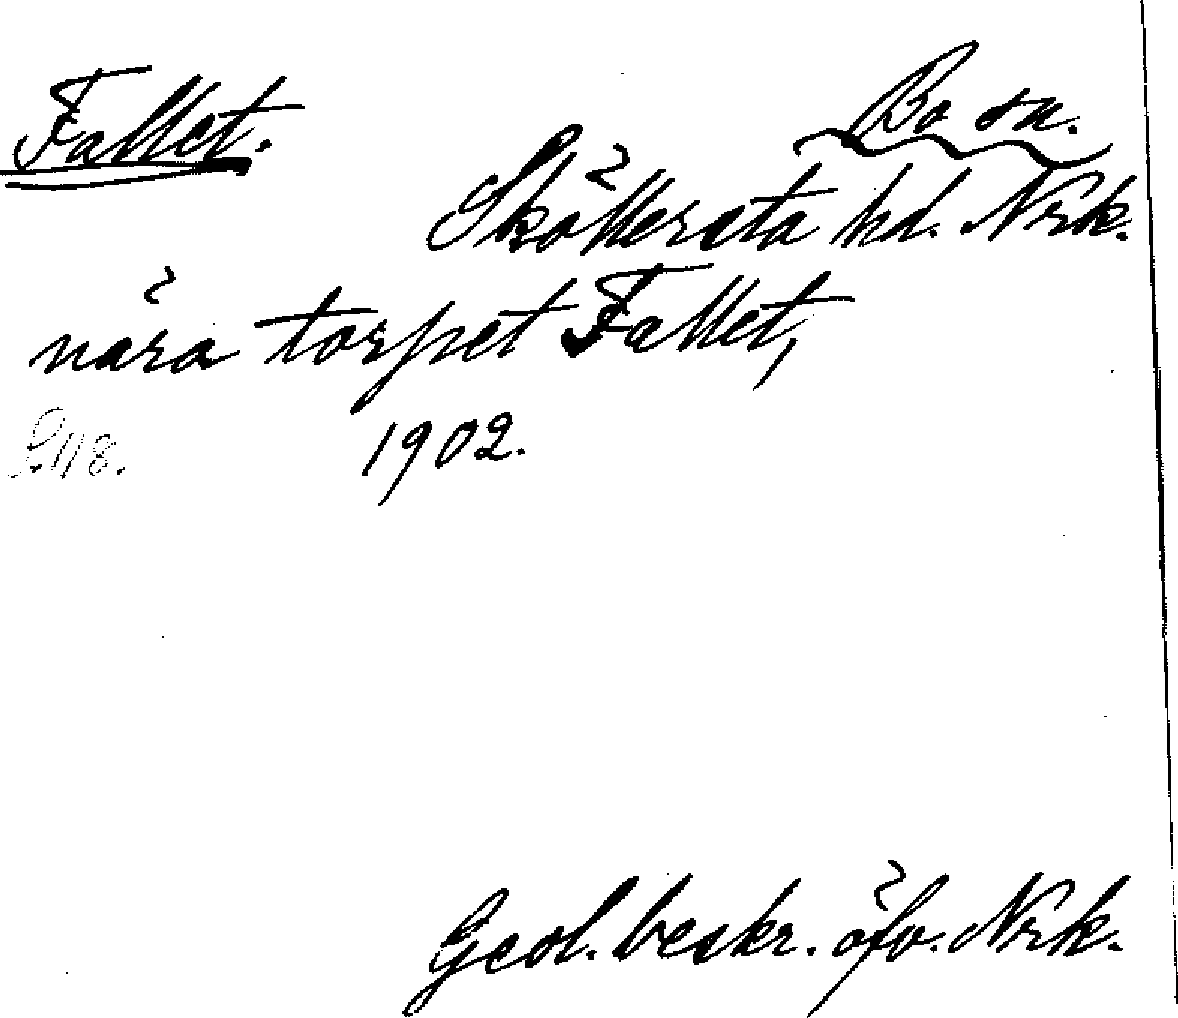 Fallet.
Bo sn.
Sköllersta hd. Nrk.
nära torpet Fallet,
S. 118.
1902.
Geol. beskr. öfv. Nrk.